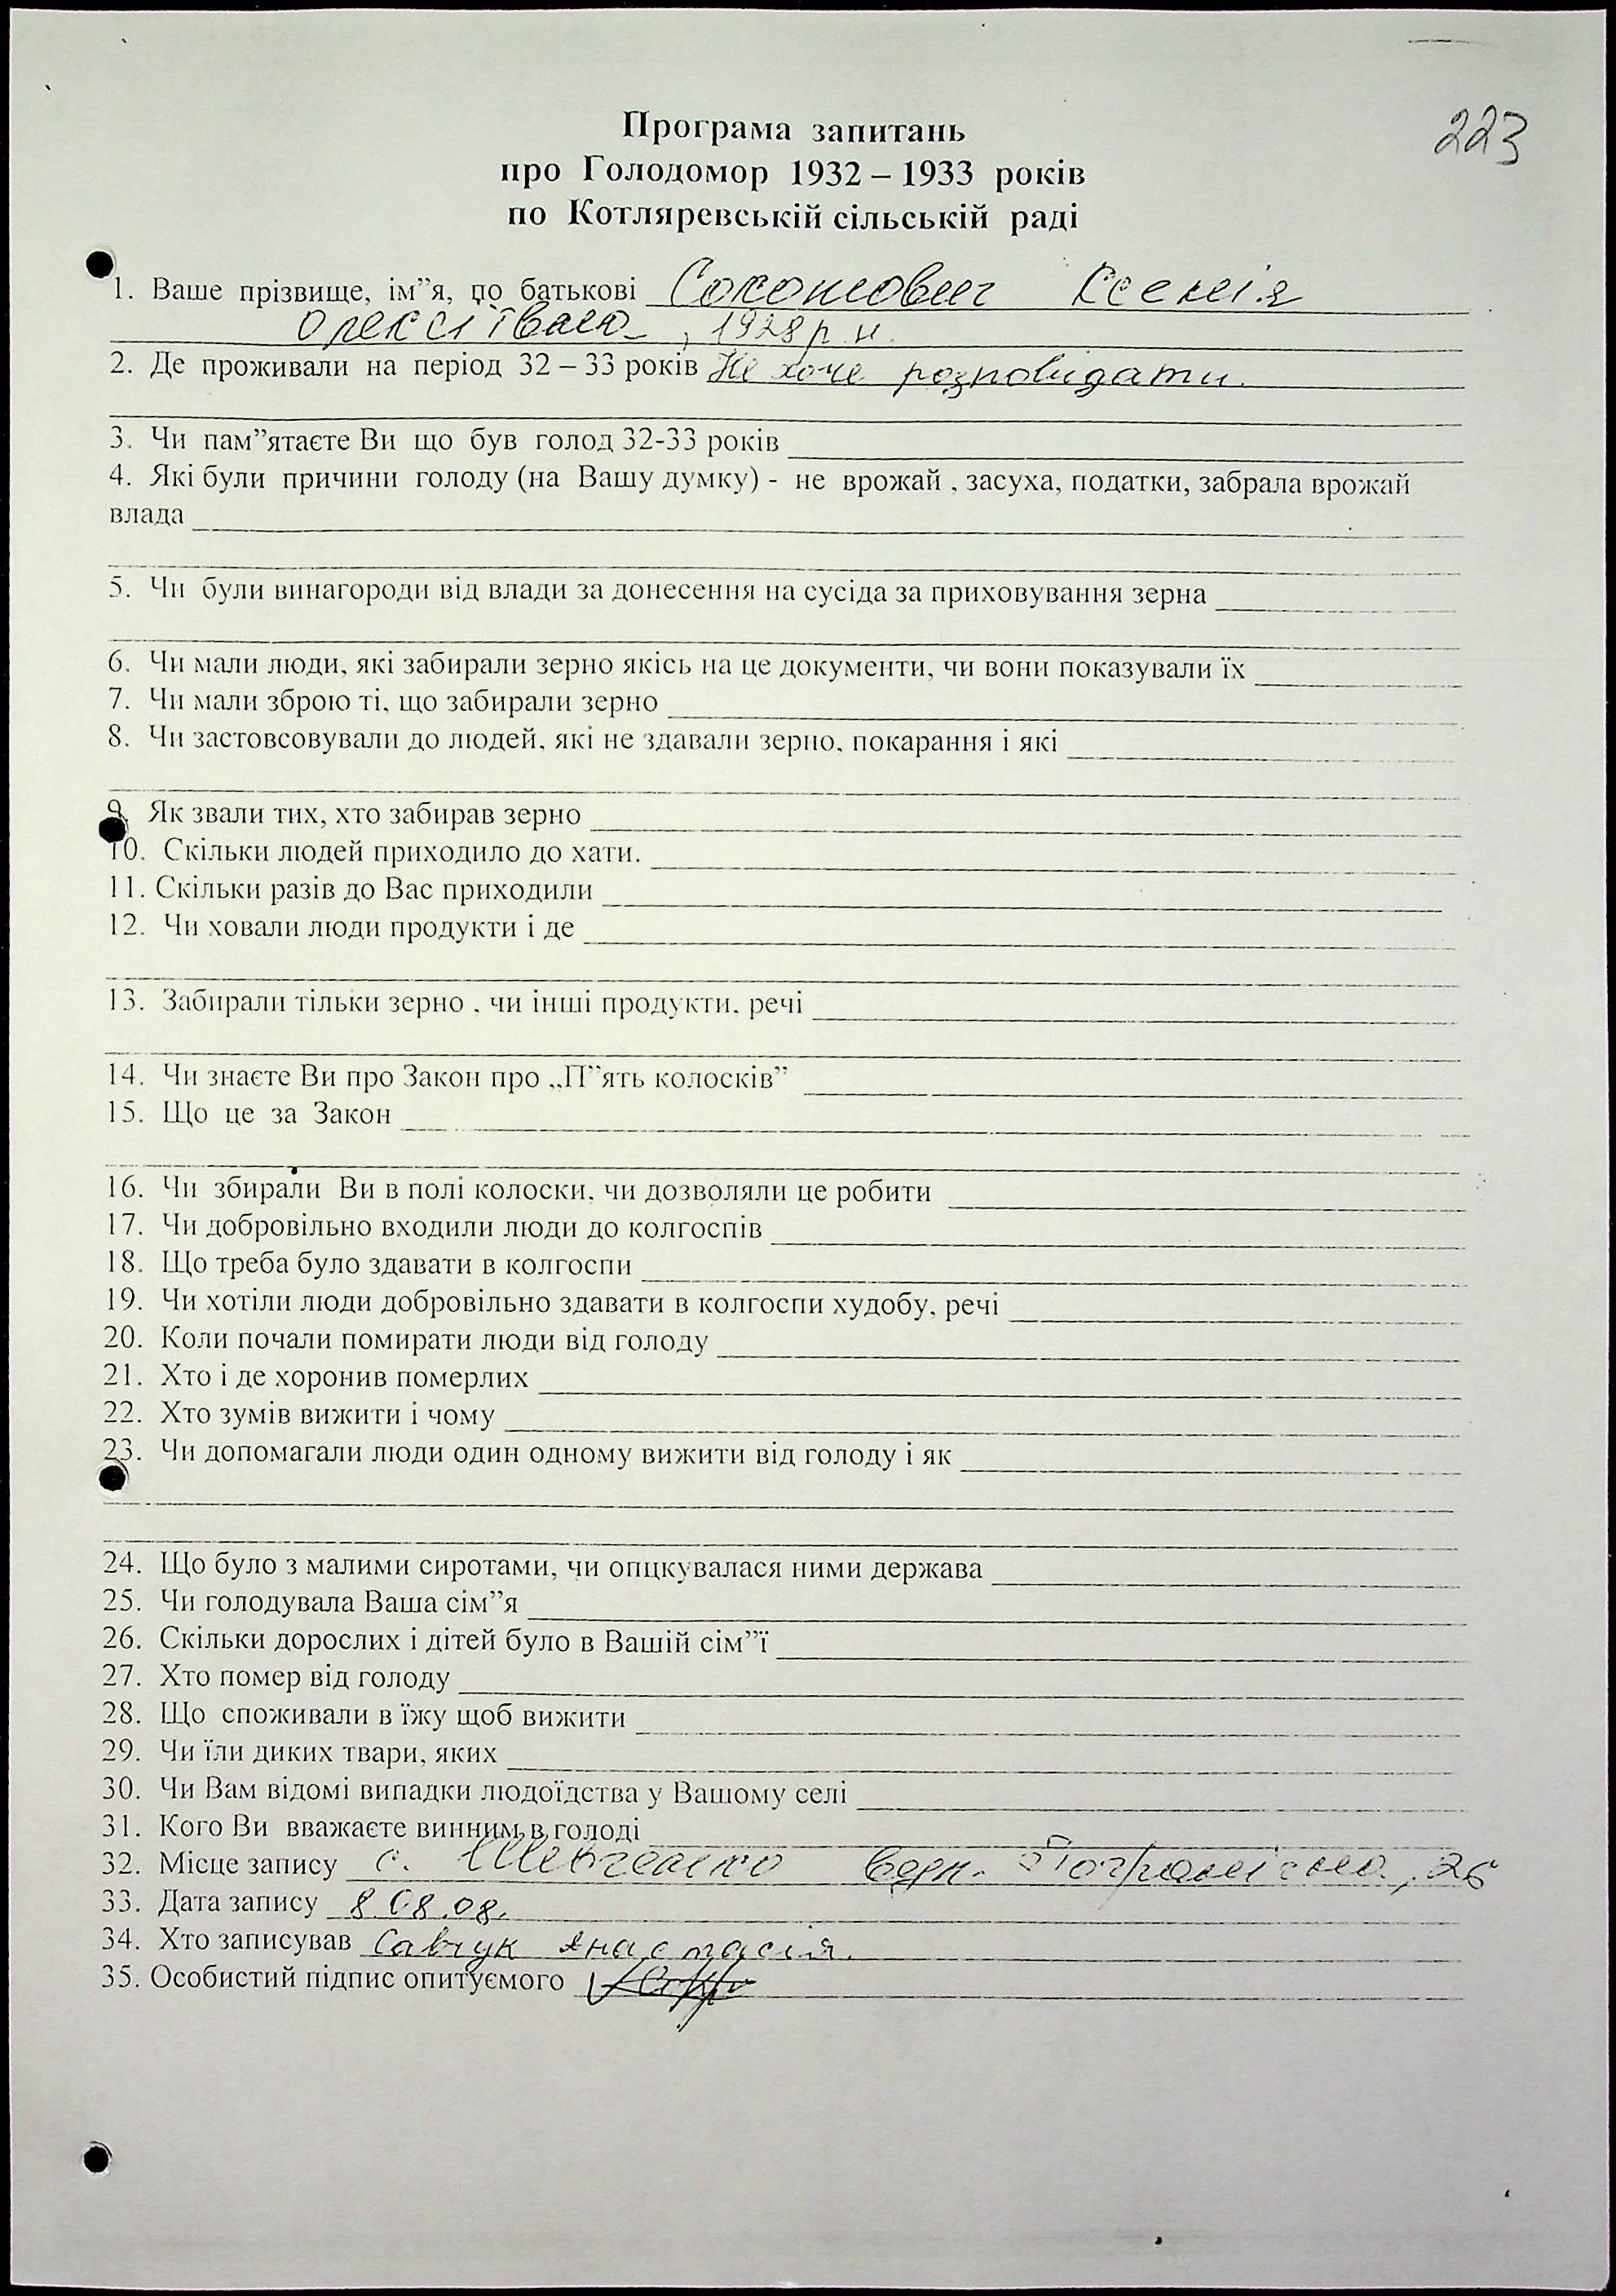 223
Програма запитань
про Голодомор 1932 – 1933 років
по Котляревській сільській раді
1. Ваше прізвище, ім”я, по батькові Ксенія
Олексіївна, 1928 р н.
2. Де проживали на період 32 – 33 років Не хоче розповідати.
3. Чи пам”ятаєте Ви що був голод 32-33 років
4. Які були причини голоду (на Вашу думку) - не врожай , засуха, податки, забрала врожай
влада
5. Чи були винагороди від влади за донесення на сусіда за приховування зерна
6. Чи мали люди, які забирали зерно якісь на це документи, чи вони показували їх
7. Чи мали зброю ті, що забирали зерно
8. Чи застовсовували до людей, які не здавали зерно, покарання і які
9. Як звали тих, хто забирав зерно
10. Скільки людей приходило до хати.
11. Скільки разів до Вас приходили
12. Чи ховали люди продукти і де
13. Забирали тільки зерно , чи інші продукти, речі
14. Чи знаєте Ви про Закон про „П”ять колосків”
15. Що це за Закон
16. Чи збирали Ви в полі колоски, чи дозволяли це робити
17. Чи добровільно входили люди до колгоспів
18. Що треба було здавати в колгоспи
19. Чи хотіли люди добровільно здавати в колгоспи худобу, речі
20. Коли почали помирати люди від голоду
21. Хто і де хоронив померлих
22. Хто зумів вижити і чому
23. Чи допомагали люди один одному вижити від голоду і як
24. Що було з малими сиротами, чи опцкувалася ними держава
25. Чи голодувала Ваша сім”я
26. Скільки дорослих і дітей було в Вашій сім”ї
27. Хто помер від голоду
28. Що споживали в їжу щоб вижити
29. Чи їли диких твари, яких
30. Чи Вам відомі випадки людоїдства у Вашому селі
31. Кого Ви вважаєте винним в голоді
32. Місце запису с. Шевченко вул. 26
33. Дата запису 8.08.08.
34. Хто записував Савчук Анастасія.
35. Особистий підпис опитуємого